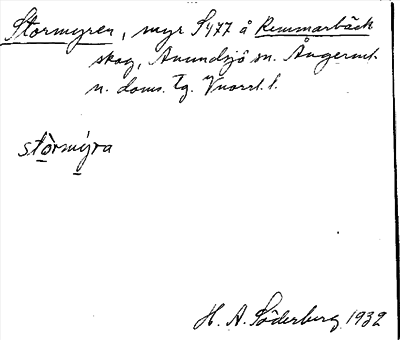 Stormyren, myr S477 å Remmarbäck
skog, Anundsjö sn. Ångerml.
n. doms. Tg. Vnorrl. l.
stòrmýra
H. A. Söderberg 1932